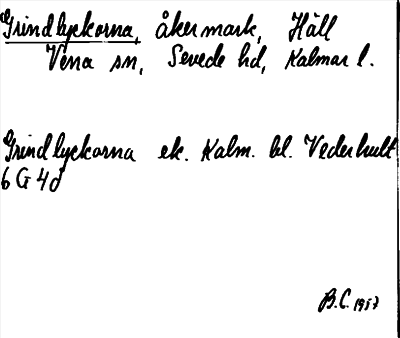 Grindlyckorna, åkermark, Häll
Vena sn, Sevede hd, Kalmar l.
Grindlyckorna ek. Kalm. bl. Vederhult
6 G 4 d
B.C. 1957